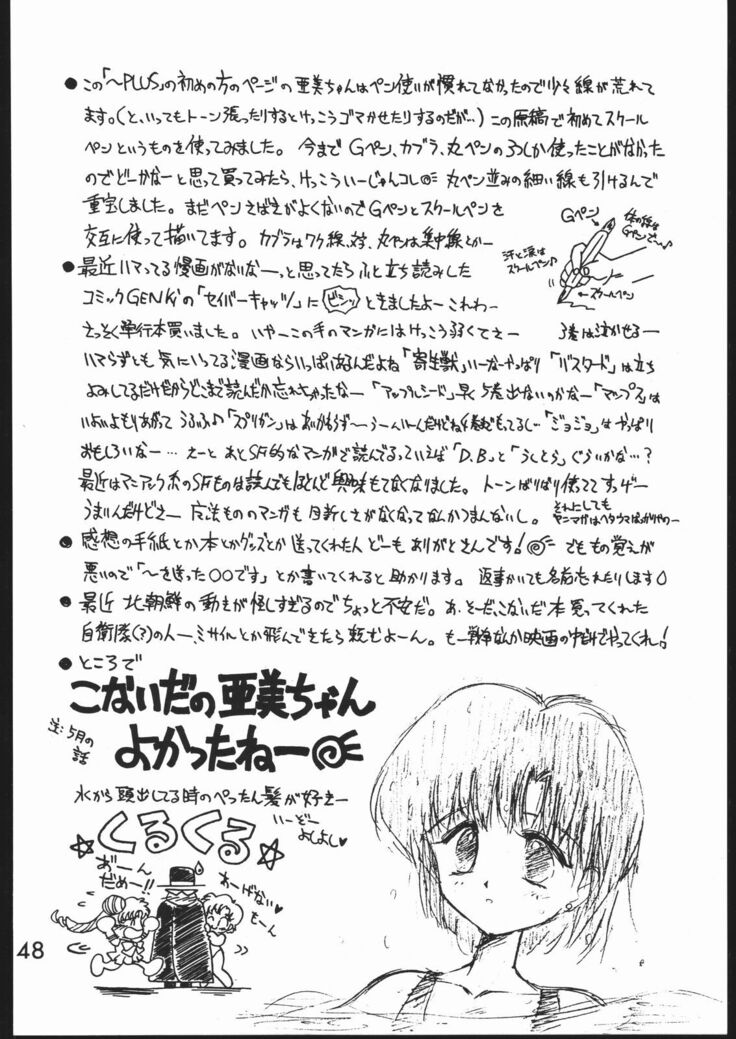 ●この「～PLUS」の初めの方のページの亜美ちゃんはペン使いが慣れてなかったので少々線が荒れて
ます。(と、いってもトーン張ったりするとけっこうゴマかせたりするのだが…)この原稿で初めてスクール
ペンというものを使ってみました。今までGペン、カブラ、丸ペンの3つしか使ったことがなかった
のでどーかなーと思って買ってみたら、けっこういーじゃんコレ 丸ペン並みの細い線も引けるんで
重宝しました。まだペンさばきがよくないのでGペンとスクールペンを
交互に使って描いてます。カブラはワク線、丸ペンは集中線とかー
Gペン
体の線は
Gペンで♪
汗と涙は
スクールペン♪
←スクールペン
●最近ハマってる漫画がないなーっと思ってたらふと立ち読みした
コミックGENKiの「セイバーキャッツ」に ビビッ ときましたよーこれわー
さっそく単行本買いました。いやーこの手のマンガにはけっこう弱くてさー
3巻は泣かせるー
ハマらずとも気にいってる漫画ならいっぱいあるんだよね「寄生獣」いーなーやっぱり「バスタード」は立ち
よみしてるだけだからどこまで読んだか忘れちゃったなー「アップルシード」早く5巻出ないのかなー「マップス」は
いよいよもりあがって うふふ♪「スプリガン」はあいかわらず～うーんいーんだけどね 「ジョジョ」はやっぱり
おもしろいなー…えーと あとSF的なマンガで読んでるっていえば「D.B」と「うしとら」ぐらいかな…?
最近はマニアック系のSFものは読んでもほとんど興味もてなくなりました。トーンばりばり使っててすっげー
うまいんだけどさー 魔法もののマンガも目新しさがなくなってなんかつまんないし。
それにしても
ヤニマガはヘタウマばっかりやのー
●感想の手紙とか本とかグッズとか送ってくれた人どーもありがとさんです! でももの覚えが
悪いので「～を送った○○です」とか書いてくれると助かります。返事かいても名前忘れたりします
●最近 北朝鮮の動きが怪しすぎるのでちょっと不安だ。あ、そーだ、こないだ本買ってくれた
自衛隊(?)の人ー、ミサイルとか飛んできたら頼むよーん。もー戦争なんか映画の中だけでやってくれ!
●ところで
こないだの亜美ちゃん
よかったねー
注:5月の
話
水から頭出してる時のぺったん髪が好きー
いーどー
よしよし♥
☆くるくる☆
あ゛ーん
だめー!!
あーげない♥
もーん
48